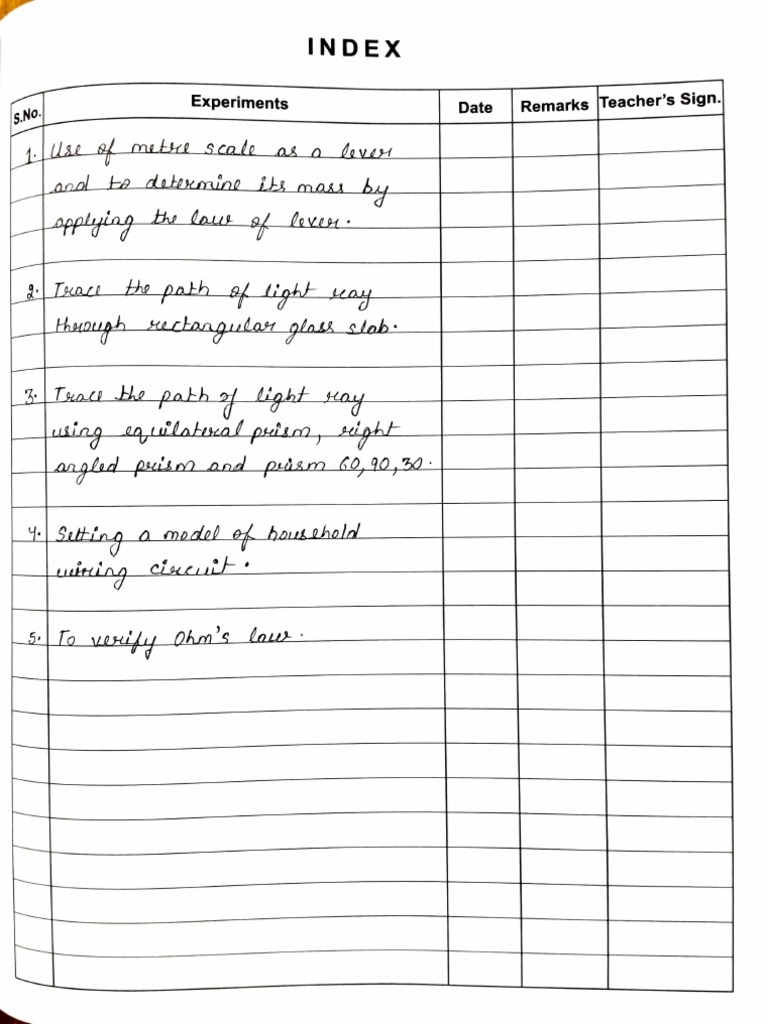 INDEX
S.No. Experiments Date Remarks Teacher's Sign.
1. Use of metre scale as a lever
and to determine its mass by
applying the law of lever.
2. Trace the path of light ray
through rectangular glass slab.
3. Trace the path of light ray
using equilateral prism, right
angled prism and prism 60,90,30.
4. Setting a model of household
wiring circuit.
5. To verify Ohm's law.